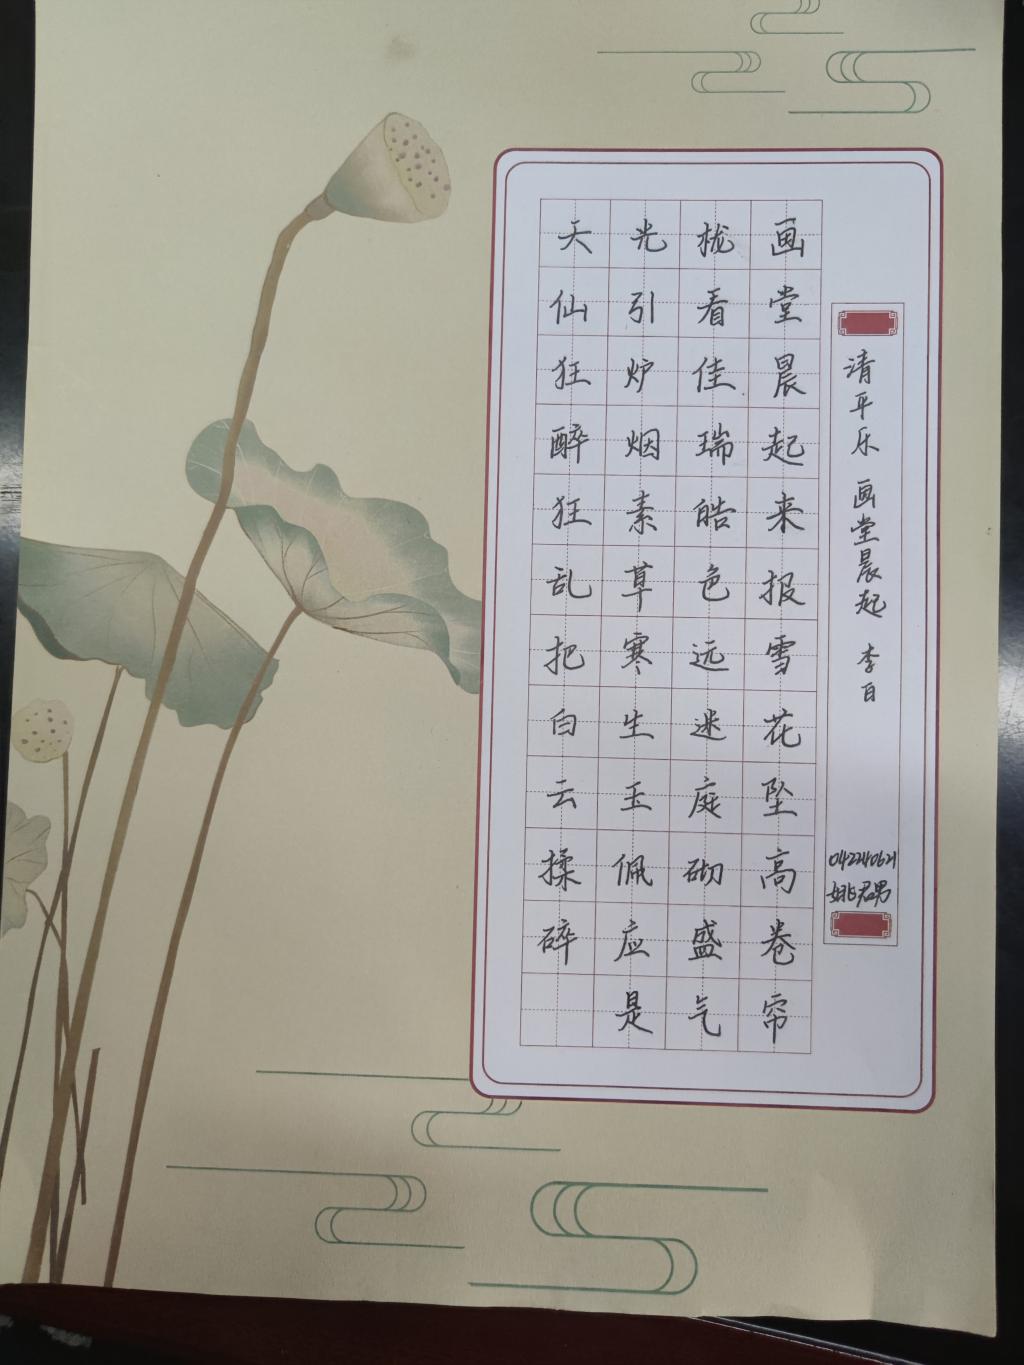 清平乐 画堂晨起 李白
042240621
姚君男
画堂晨起来报雪花坠高卷帘
栊看佳瑞皓色远迷庭砌盛气
光引炉烟素草寒生玉佩应是
天仙狂醉狂乱把白云揉碎